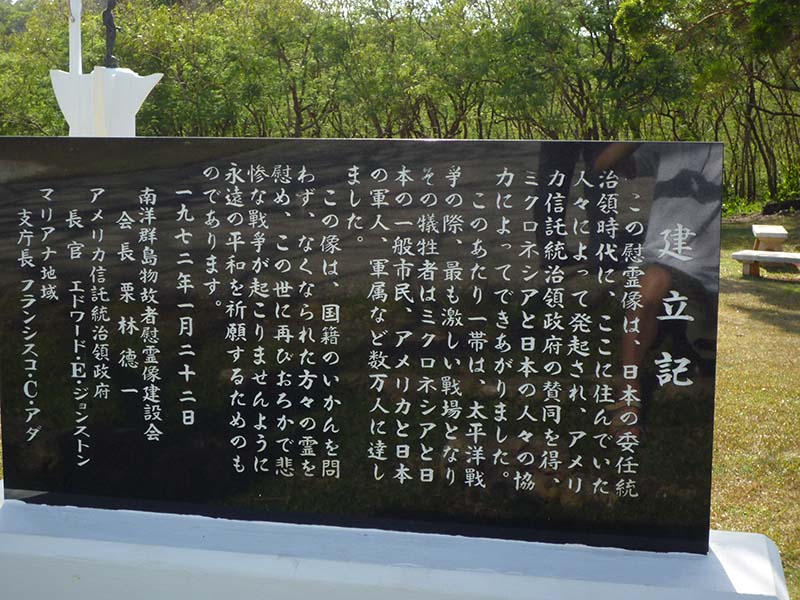 建立記
この慰霊像は、日本の委任統
治領時代に、ここに住んでいた
人々によって発起され、アメリ
カ信託統治領政府の賛同を得、
ミクロネシアと日本の人々の協
力によってできあがりました。
このあたり一帯は、太平洋戦
争の際、最も激しい戦場となり
その犠牲者はミクロネシアと日
本の一般市民、アメリカと日本
の軍人、軍属など数万人に達し
ました。
この像は、国籍のいかんを問
わず、なくなられた方々の霊を
慰め、この世に再びおろかで悲
惨な戦争が起こりませんように
永遠の平和を祈願するためのも
のであります。
一九七二年一月二十二日
南洋群島物故者慰霊像建設会
会長栗林徳一
アメリカ信託統治領政府
長官 エドワード・E・ジョンストン
マリアナ地域
支庁長 フランシスコ・C・アダ